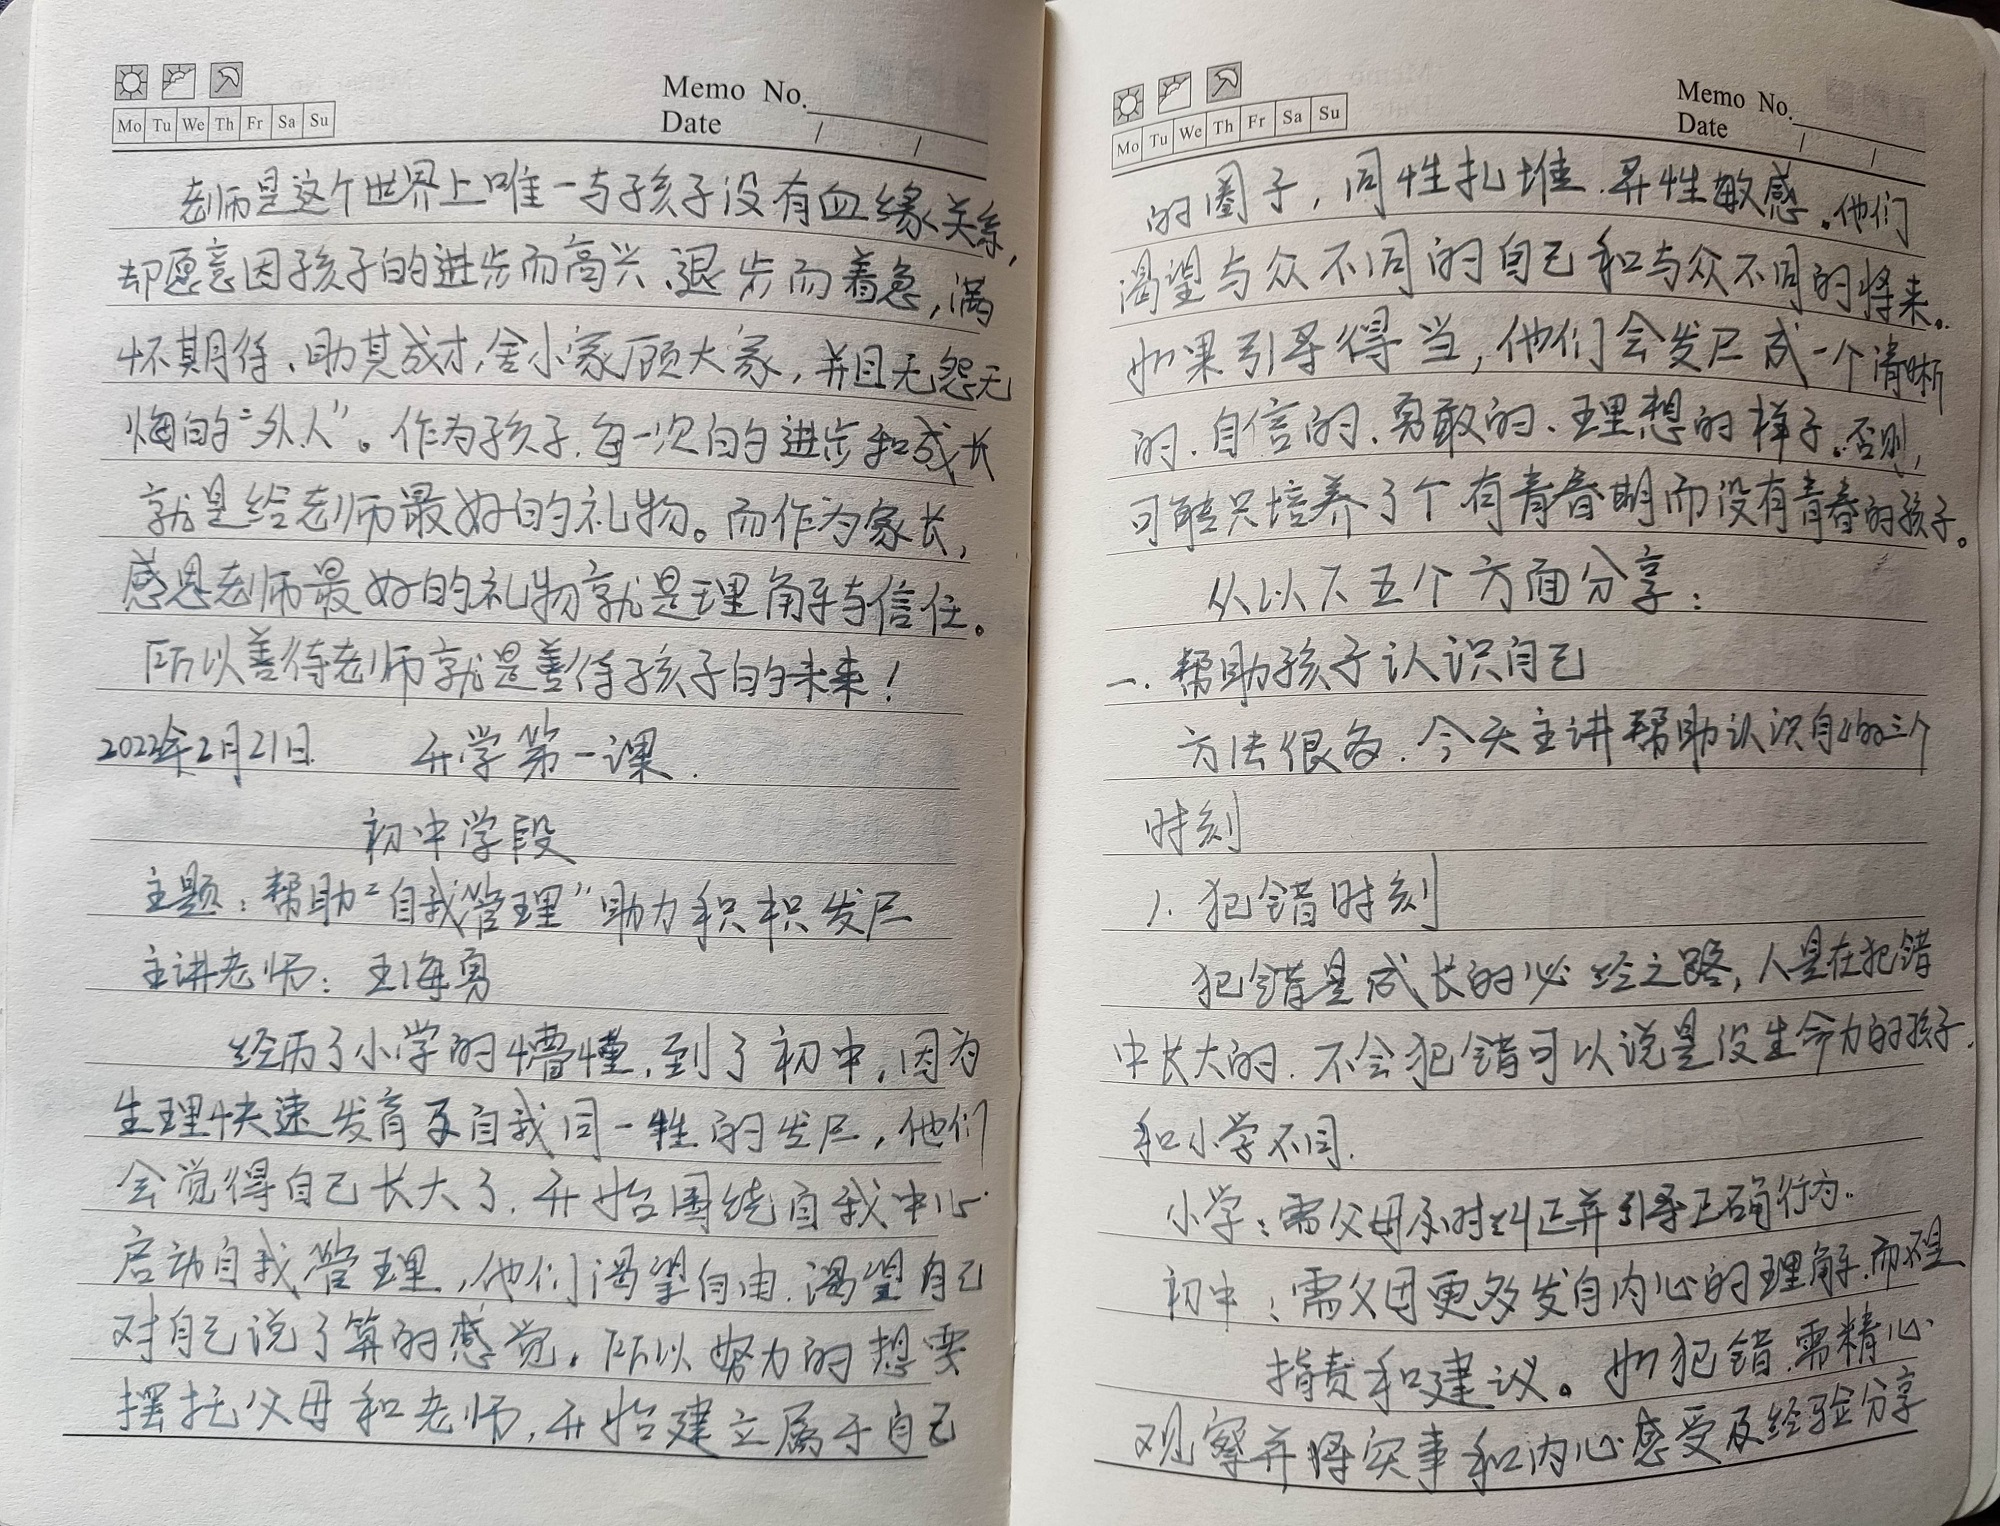 Memo No.
Date / /
Mo Tu We Th Fr Sa Su
老师是这个世界上唯一与孩子没有血缘关系,
却愿意因孩子的进步而高兴、退步而着急,满
怀期待、助其成才,舍小家顾大家,并且无怨无
悔的“外人”。作为孩子,每一次的进步和成长
就是给老师最好的礼物。而作为家长,
感恩老师最好的礼物就是理解与信任。
所以善待老师就是善待孩子的未来!
2022年2月21日 开学第一课.
初中学段
主题:帮助“自我管理”助力积积发展
主讲老师:王海勇
经历了小学的懵懂,到了初中,因为
生理快速发育及自我同一性的发展,他们
会觉得自己长大了,开始围绕自我中心
启动自我管理,他们渴望自由,渴望自己
对自己说了算的感觉。所以努力的想要
摆托父母和老师,开始建立属于自己
Memo No.
Date / /
Mo Tu We Th Fr Sa Su
的圈子,同性扎堆,异性敏感。他们
渴望与众不同的自己和与众不同的将来。
如果引导得当,他们会发展成一个清晰
的、自信的、勇敢的、理想的样子。否则,
可能只培养了个有青春期而没有青春的孩子。
从以下五个方面分享:
一.帮助孩子认识自己
方法很多.今天主讲帮助认识自己的三个
时刻
1.犯错时刻
犯错是成长的必经之路,人是在犯错
中长大的.不会犯错可以说是没生命力的孩子.
和小学不同.
小学:需父母及时纠正并引导正确行为.
初中:需父母更多发自内心的理解,而不是
指责和建议。如犯错,需精心
观察并将实事和内心感受及经验分享